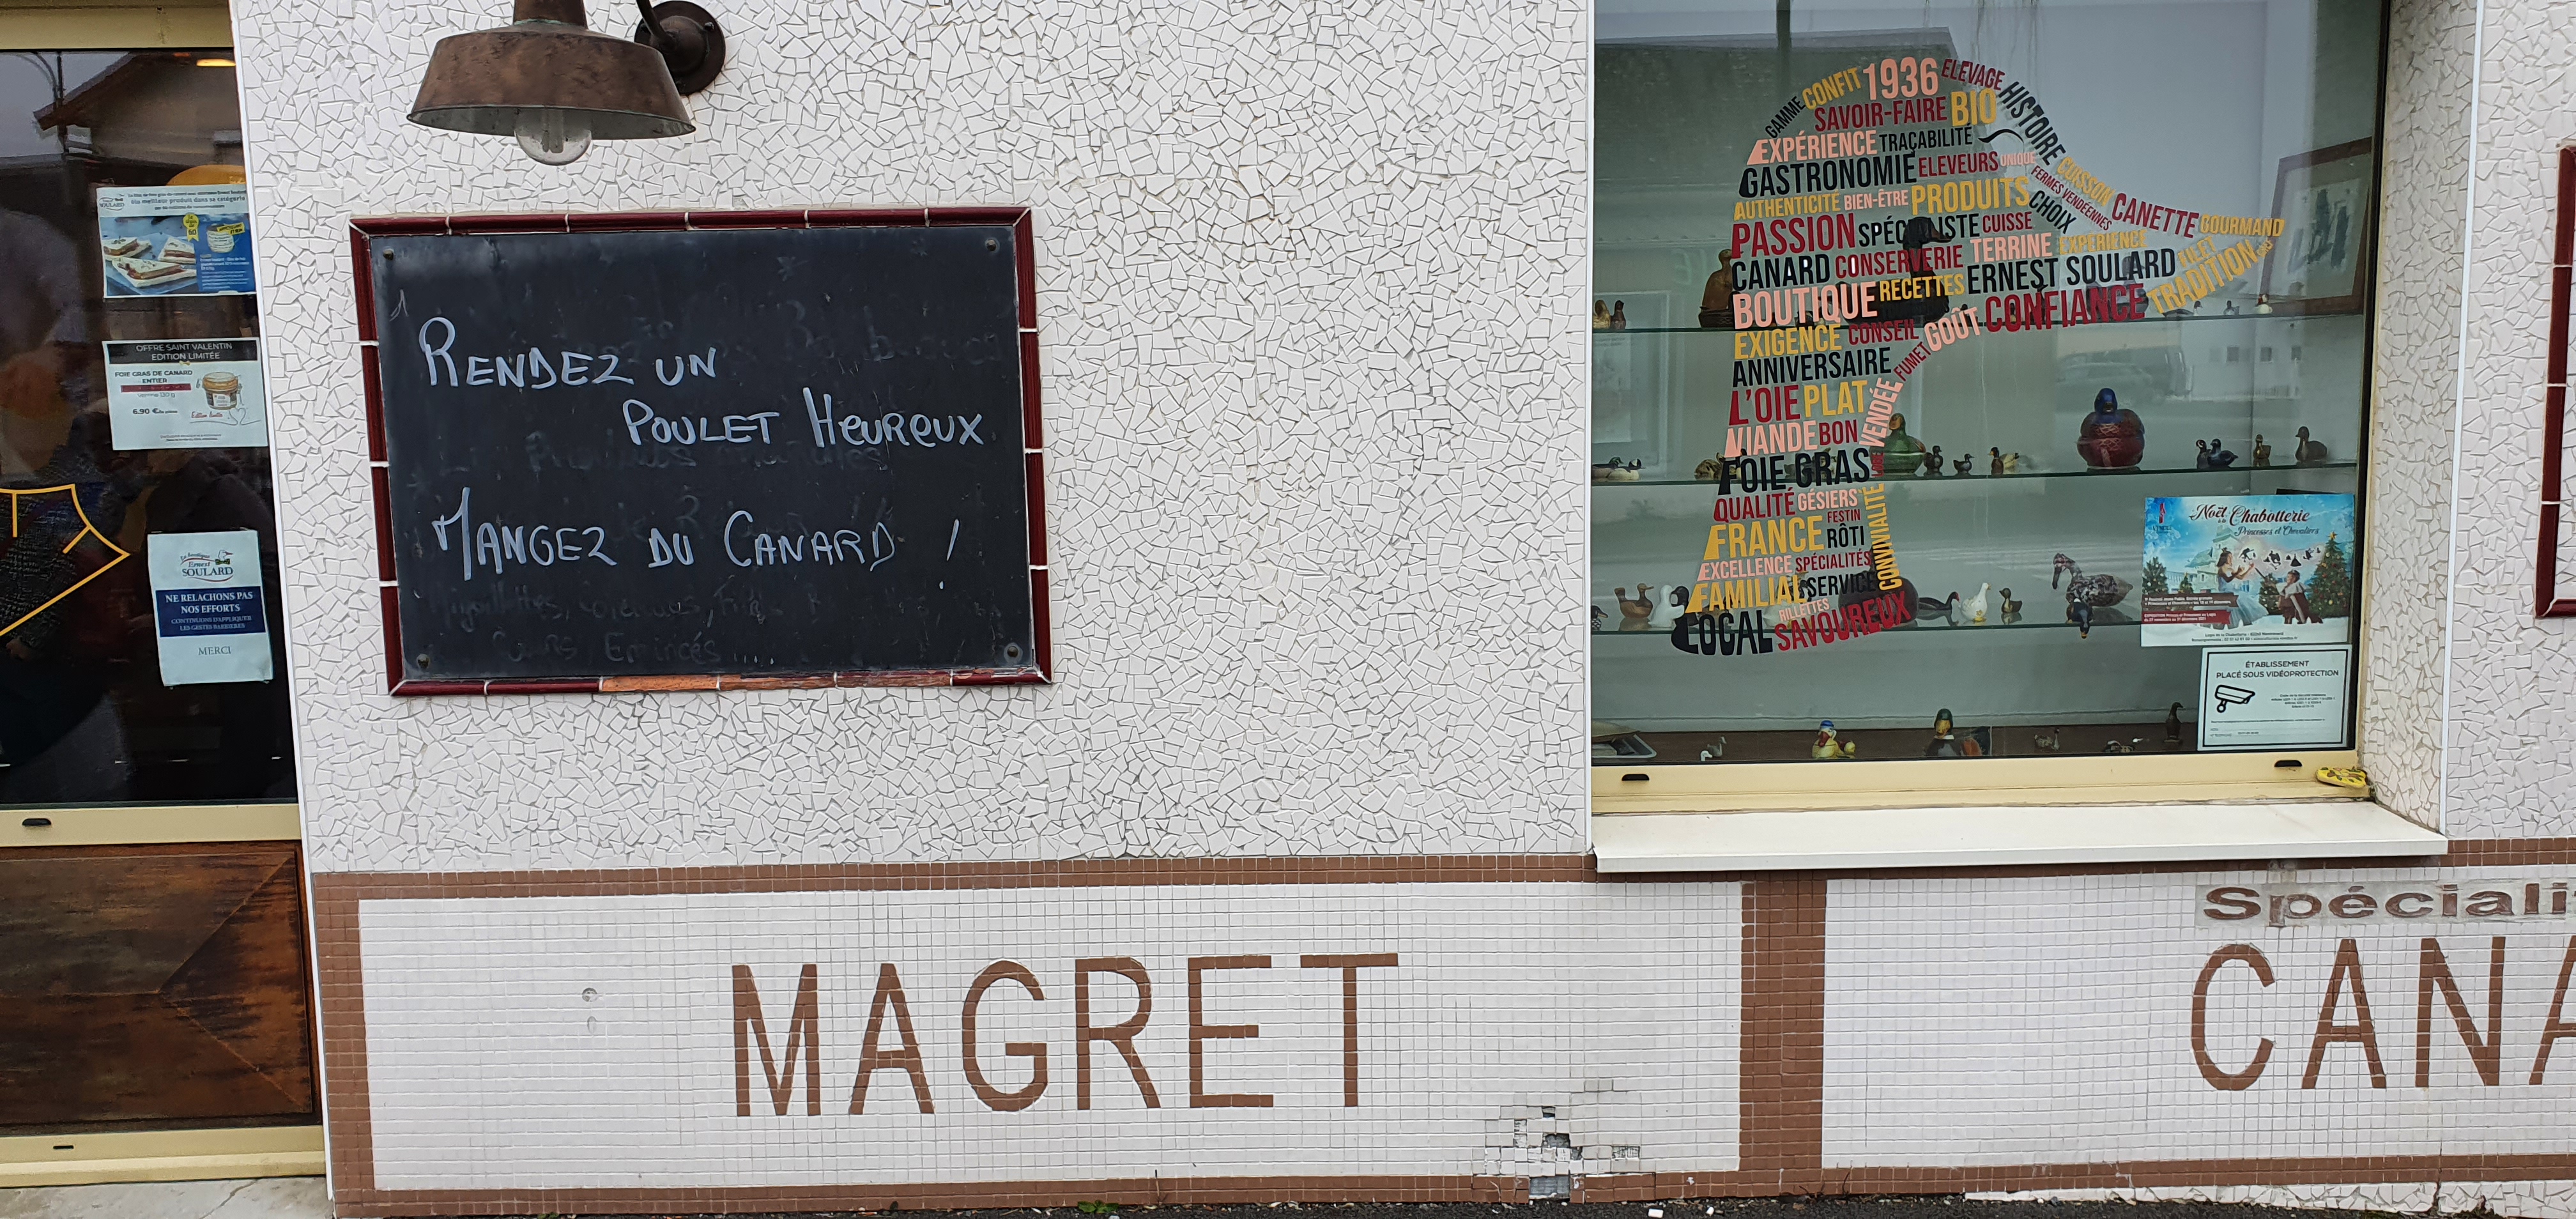 bio meilleur produit dans sa catégorie
OFFRE SAINT VALENTIN
EDITION LIMITÉE
FOIE GRAS DE CANARD
ENTIER
6,90 €
La boutique
Ernest
SOULARD
NE RELACHONS PAS
NOS EFFORTS
CONTINUONS D'APPLIQUER
LES GESTES BARRIERES
MERCI
RENDEZ UN
POULET HEUREUX
MANGEZ DU CANARD !
GAMME CONFIT 1936 ELEVAGE HISTOIRE
SAVOIR-FAIRE BIO
EXPÉRIENCE TRAÇABILITÉ
GASTRONOMIE ELEVEURS UNIQUE CUISSON
AUTHENTICITÉ BIEN-ÊTRE PRODUITS CHOIX FERMES VENDÉENNES CANETTE GOURMAND
PASSION SPÉCIALISTE CUISSE
CANARD CONSERVERIE TERRINE EXPERIENCE FILET
BOUTIQUE RECETTES ERNEST SOULARD TRADITION
EXIGENCE CONSEIL GOÛT CONFIANCE
ANNIVERSAIRE FUMET
L'OIE PLAT VENDÉE
VIANDE BON
FOIE GRAS
QUALITÉ GÉSIERS CONVIVIALITÉ
FRANCE FESTIN RÔTI
EXCELLENCE SPÉCIALITÉS
FAMILIAL SERVICE
LOCAL RILLETTES SAVOUREUX
Noël à la Chabotterie
Princesses et Chevaliers
ÉTABLISSEMENT
PLACÉ SOUS VIDÉOPROTECTION
MAGRET
Spéciali
CANA